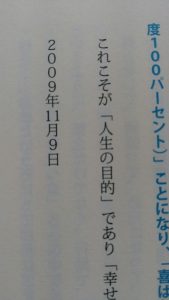 度100パーセント)」ことになり、「喜は
これこそが「人生の目的」であり「幸せ
2009年11月9日